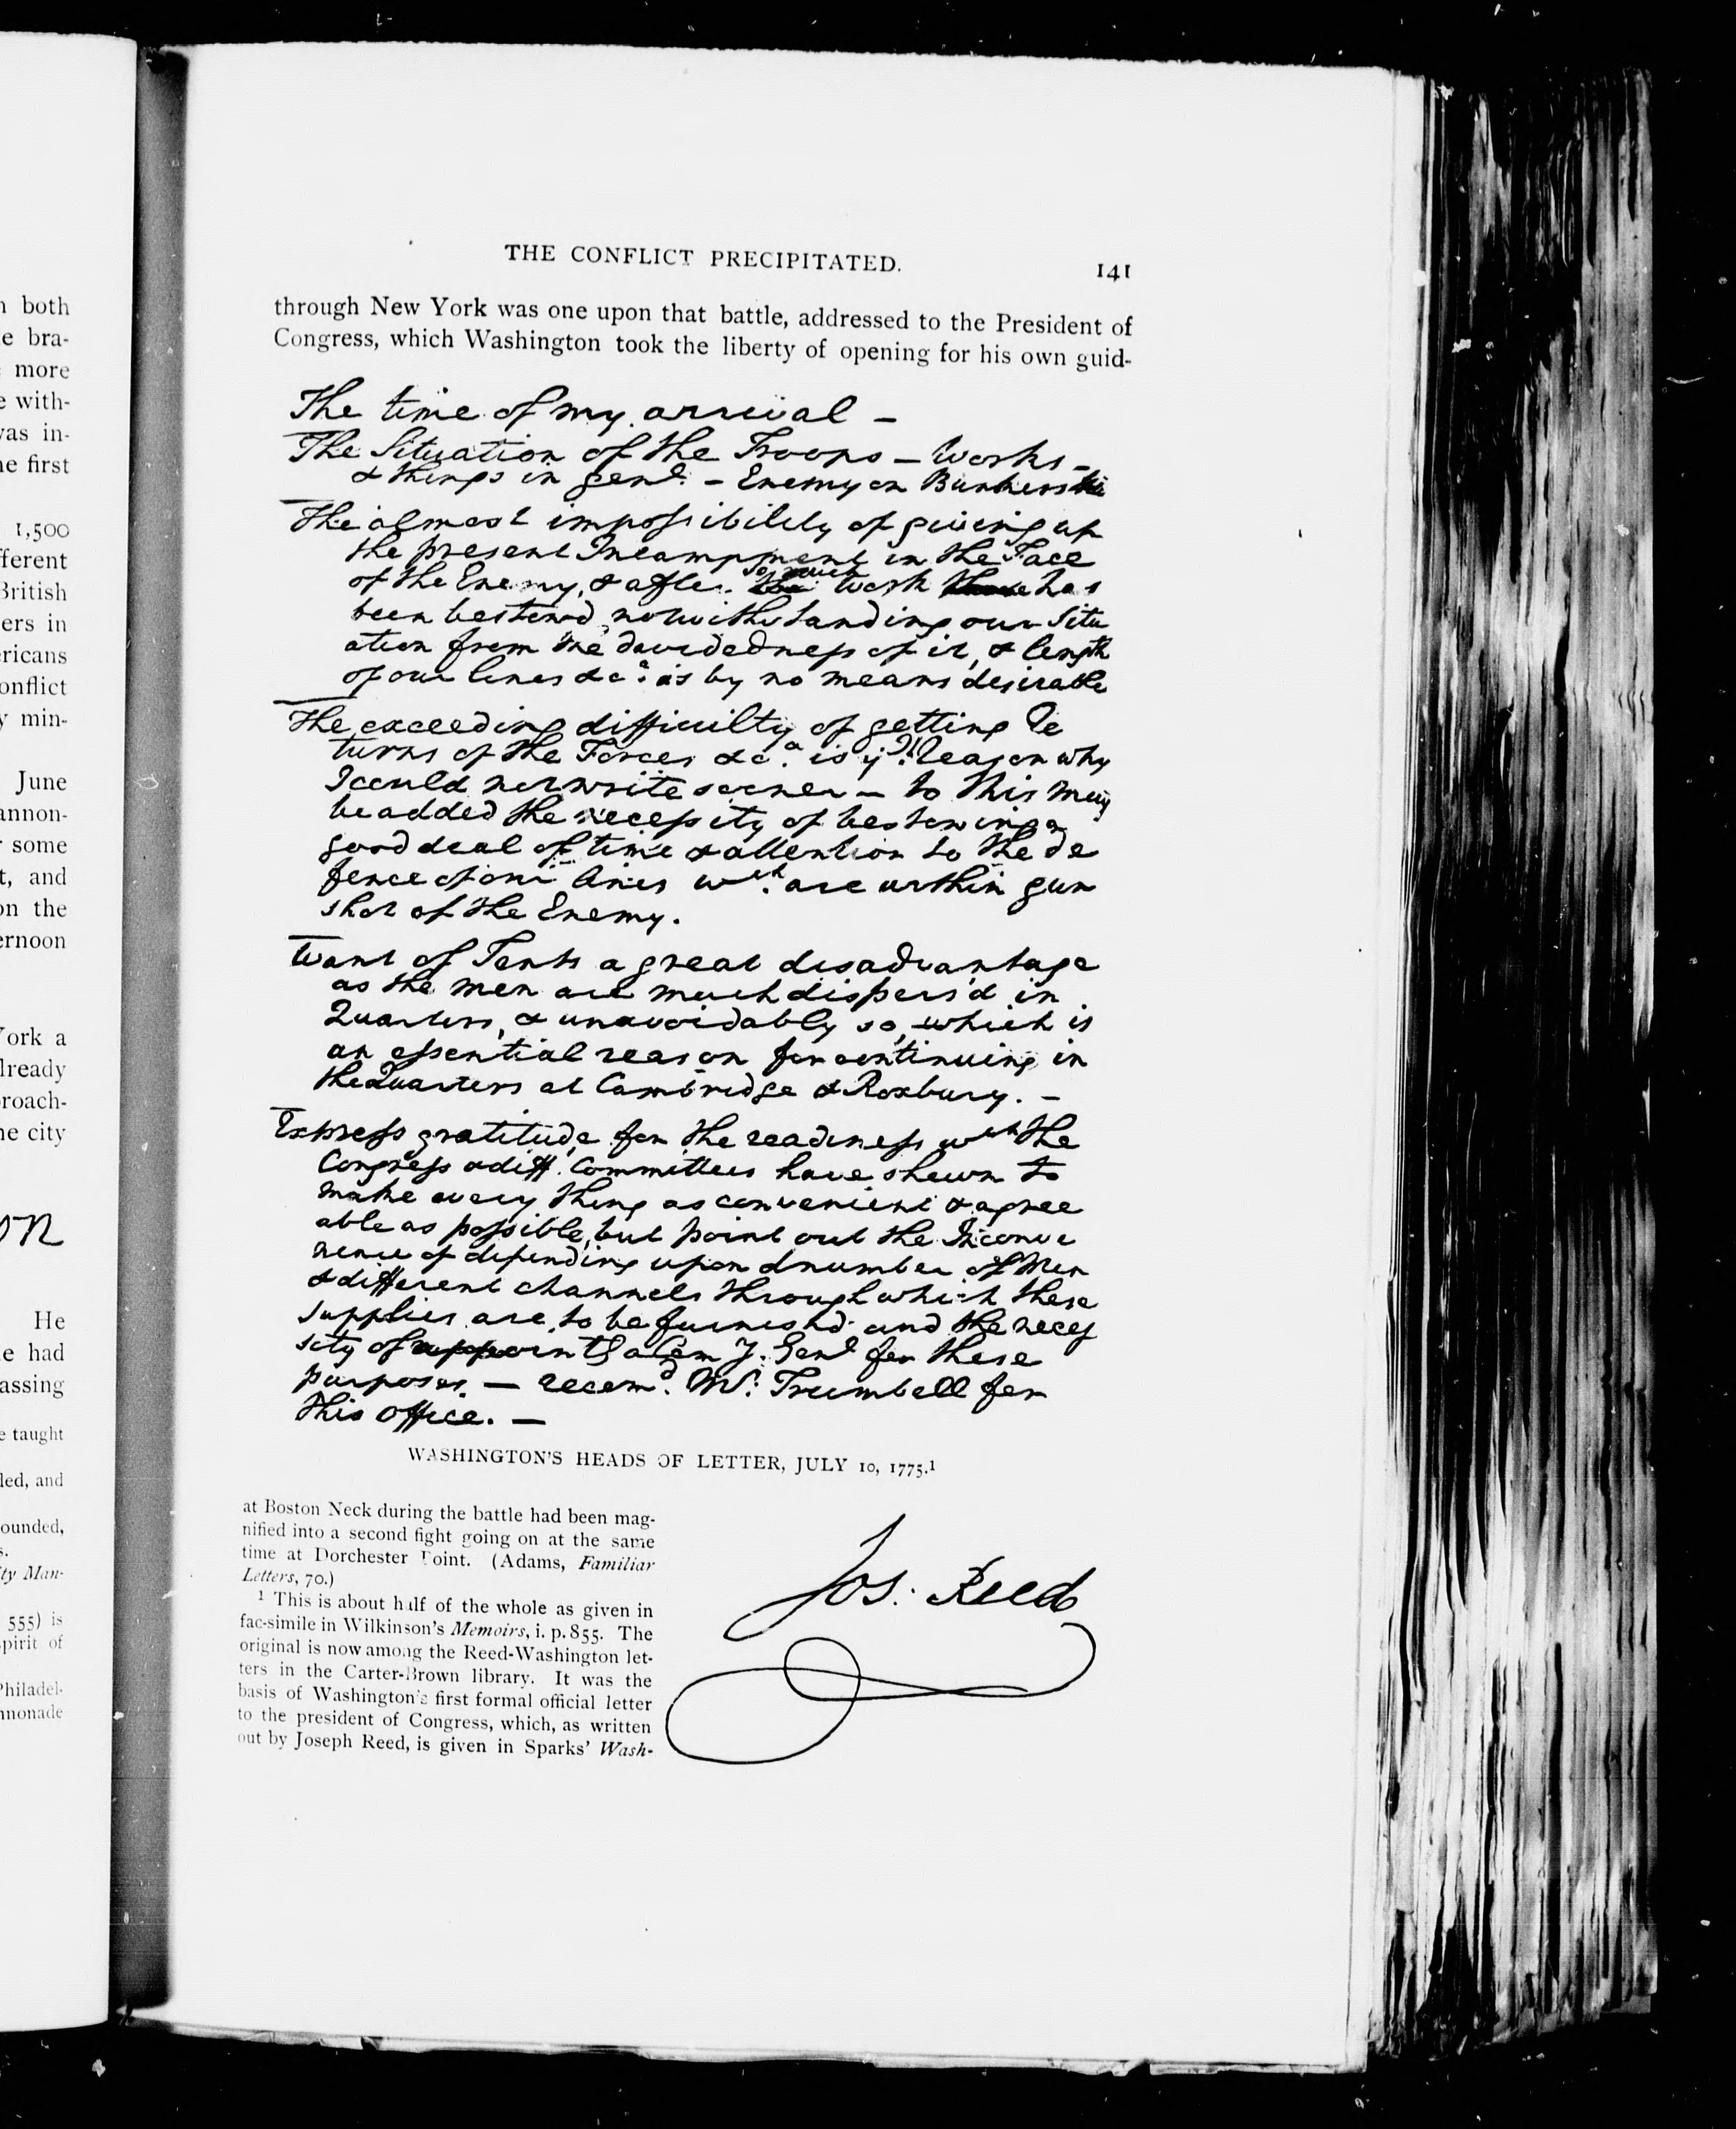 n both
e bra-
more
e with-
vas in-
ne first
1,500
fferent
British
ers in
ericans
onflict
y min-
June
annon-
some
t, and
on the
ernoon
York a
lready
proach-
ne city
on
He
e had
assing
e taught
led, and
ounded,
s.
ity Man-
555) is
spirit of
Philadel-
nnonade
THE CONFLICT PRECIPITATED.
141
through New York was one upon that battle, addressed to the President of
Congress, which Washington took the liberty of opening for his own guid-
The time of my arrival —
The Situation of the Troops — Works —
& things in genl. — Enemy on Bunkers Hill
The almost impossibility of giving up
the present Incampment in the Face
of the Enemy, & after so much work has
been bestowd, notwithstanding our Situ
ation from the dividedness of it, & length
of our lines &ca. is by no means desirable
The exceeding difficulty of getting Re
turns of the Forces &ca. is ye. Reason why
I could not write sooner — to this may
be added the necessity of bestowing a
good deal of time & attention to the de
fence of our lines wch. are within gun
shot of the Enemy.
Want of Tents a great disadvantage
as the men are much dispers'd in
Quarters, & unavoidably so, which is
an essential reason for continuing in
the Quarters at Cambridge & Roxbury. —
Express gratitude for the readiness wch the
Congress & diff. Committees have shewn to
make every thing as convenient & agree
able as possible, but point out the Inconve
nence of depending upon a number of Men
& different channels through which these
supplies are to be furnishd and the neces
sity of appointg a Com y. Genl for these
purposes. — recomd. Mr. Trumbell for
this office. —
WASHINGTON'S HEADS OF LETTER, JULY 10, 1775.¹
at Boston Neck during the battle had been mag-
nified into a second fight going on at the same
time at Dorchester Point. (Adams, Familiar
Letters, 70.)
¹ This is about half of the whole as given in
fac-simile in Wilkinson's Memoirs, i. p. 855. The
original is now among the Reed-Washington let-
ters in the Carter-Brown library. It was the
basis of Washington's first formal official letter
to the president of Congress, which, as written
out by Joseph Reed, is given in Sparks' Wash-
Jos: Reed